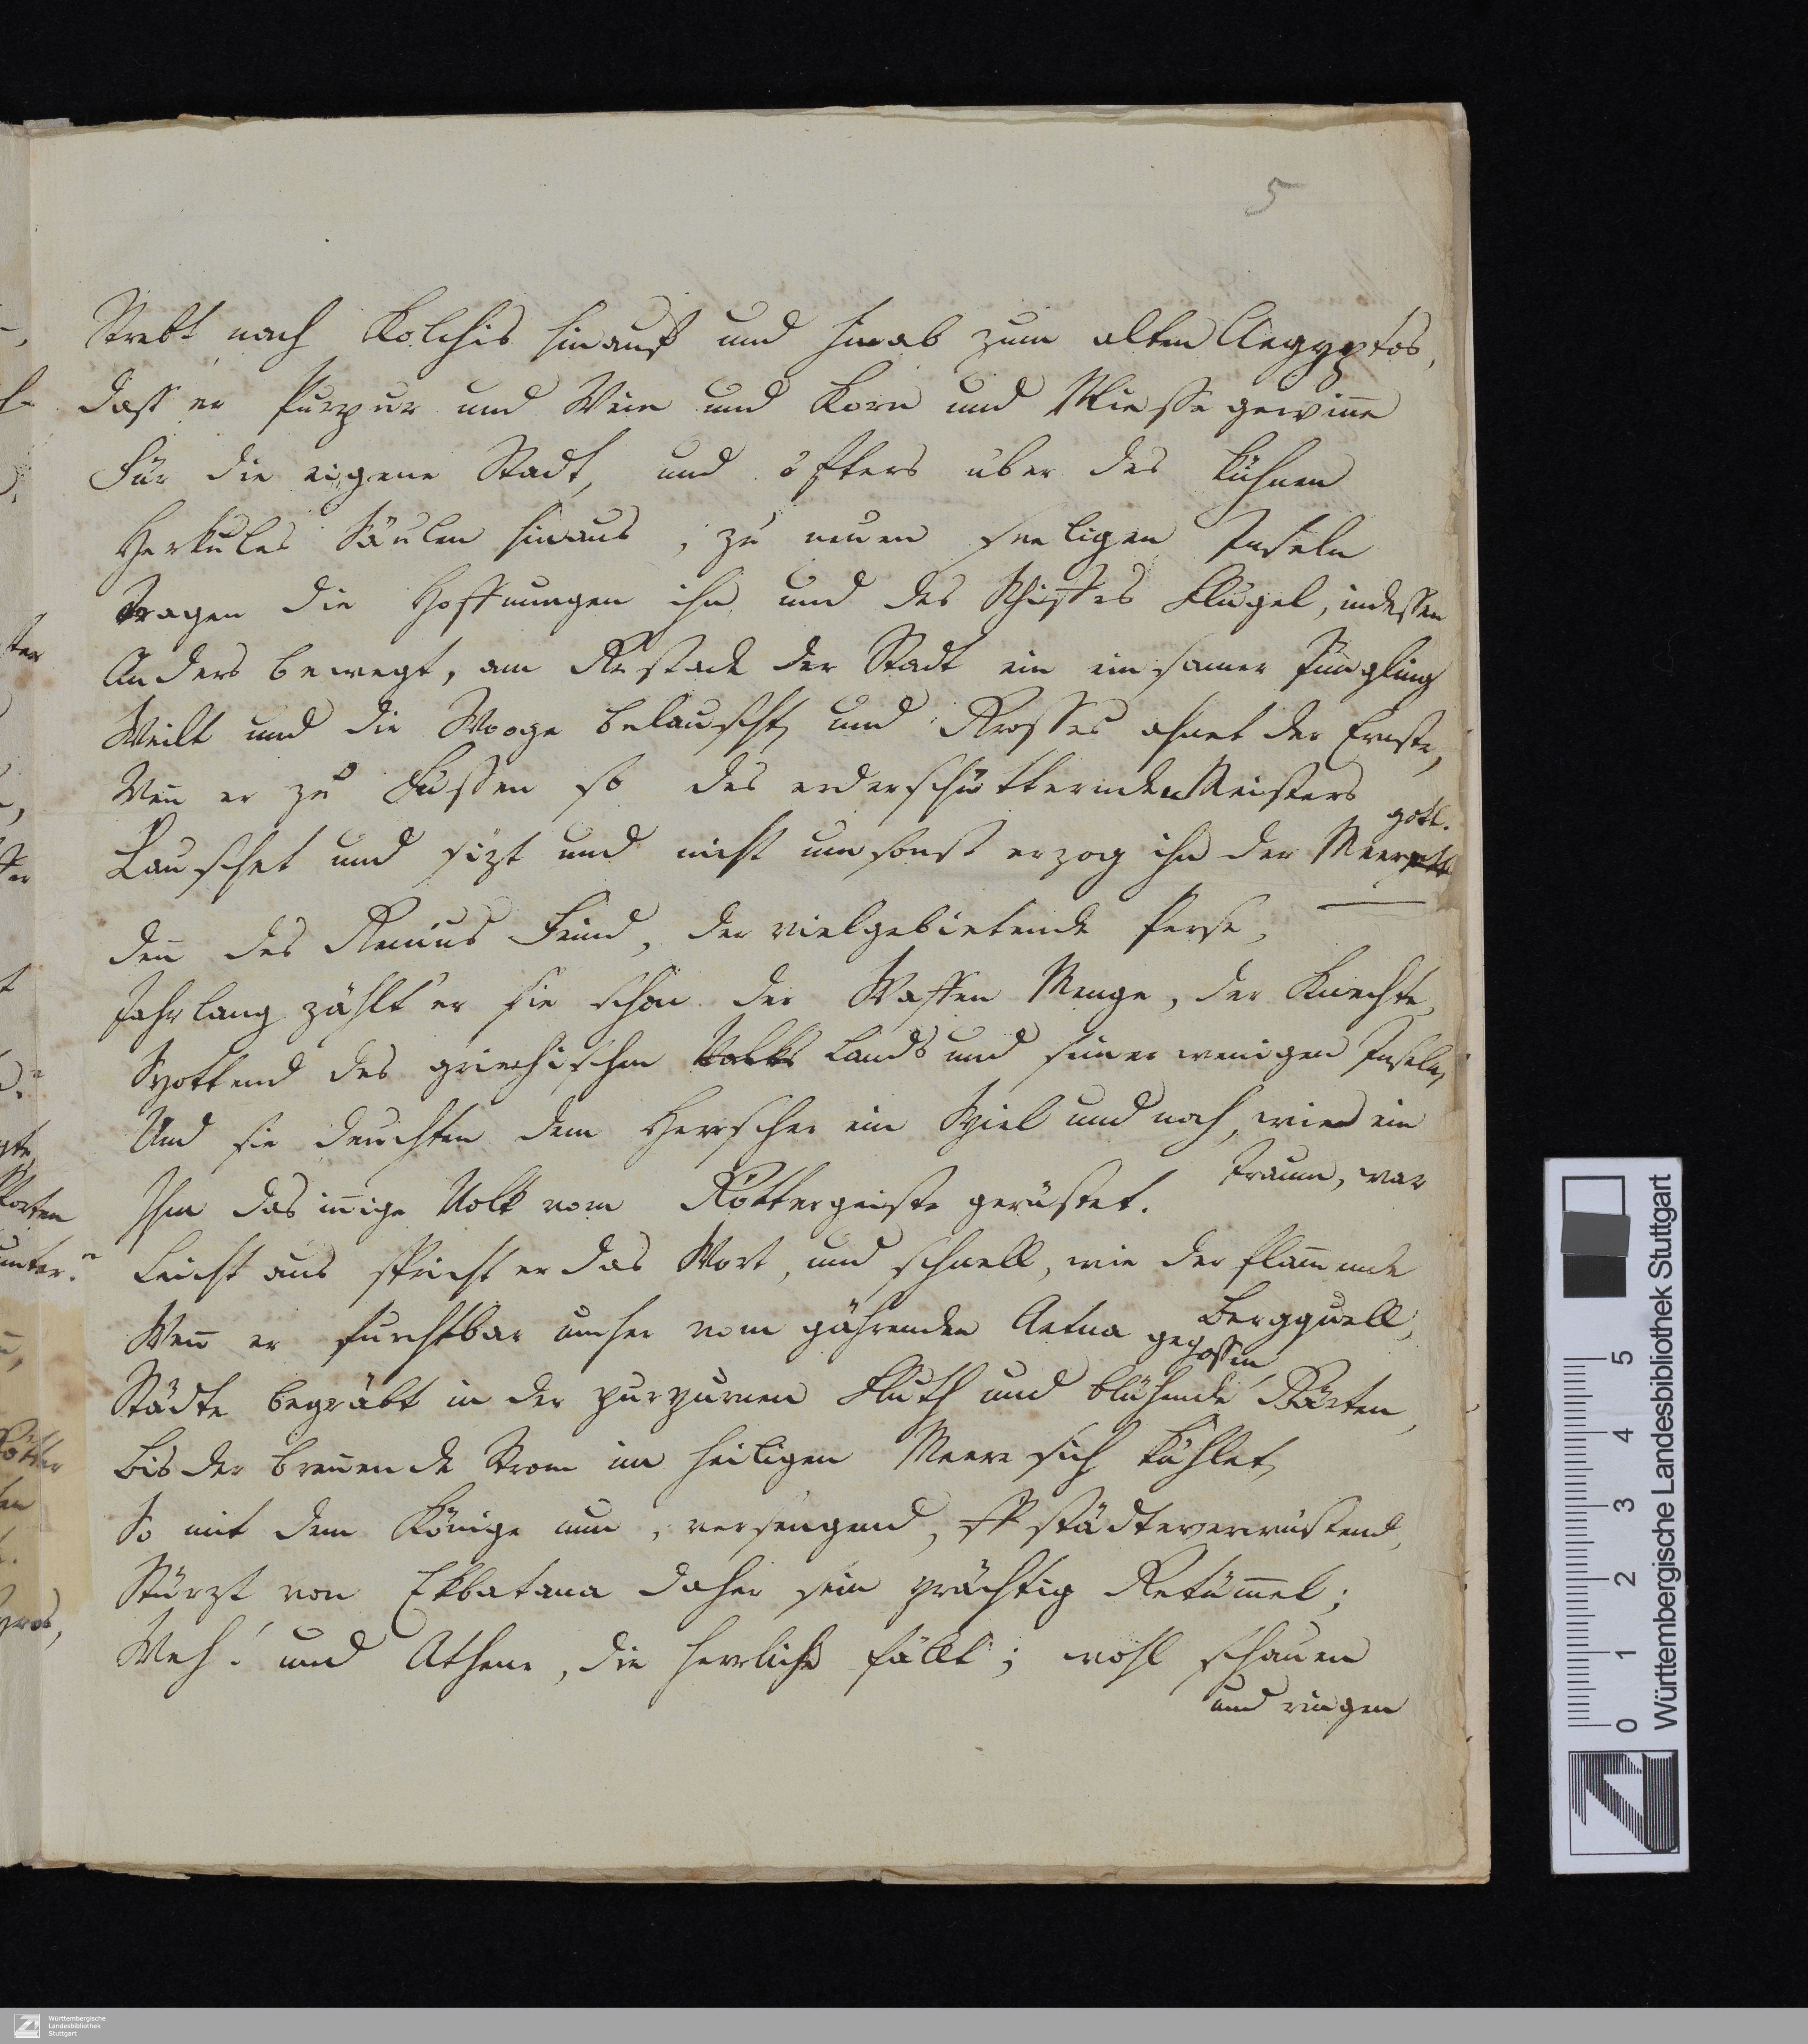 5
Strebt nach Kolchis hinauf und hinab zum alten Aegyptos,
Dass er Purpur und Wein und Korn und Vliesse gewiñe
Für die eigene Stadt, und öfters über des kühnen
Herkules Säulen hinaus, zu neuen seeligen Inseln
Tragen die Hoffnungen ihn und des Schiffes Flügel, indessen
Anders bewegt, am Gestade der Stadt ein einsamer Jüngling
Weilt und die Wooge belauscht, und Grosses ahnet der Ernste,
Weñ er zu Füssen so des erderschütternden Meisters
Lauschet und sizt und nicht umsonst erzog ihn der Meergott.
Deñ des Genius Feind, der vielgebietende Perse,
Jahrlang zählt' er sie schon der Waffen Menge, der Knechte,
Spottend des griechischen Volks Lands und seiner wenigen Inseln,
Und sie deuchten dem Herrscher ein Spiel und noch, wie ein
Traum, war
Ihm das iñige Volk vom Göttergeiste gerüstet.
Leicht aus spricht er das Wort, und schnell, wie der flam̃ende
Bergquell,
Weñ er furchtbar umher vom gährenden Aetna gegossen
Städte begräbt in der purpurnen Fluth und blühende Gärten,
Bis der breñende Strom im heiligen Meere sich kühlet,
So mit dem Könige nun, versengend, städteverwüstend,
Stürzt von Ekbatana daher sein prächtig Getüm̃el;
Weh! und Athene, die herrliche fällt; wohl schauen
und ringen
0 1 2 3 4 5
Württembergische Landesbibliothek Stuttgart
Württembergische
Landesbibliothek
Stuttgart